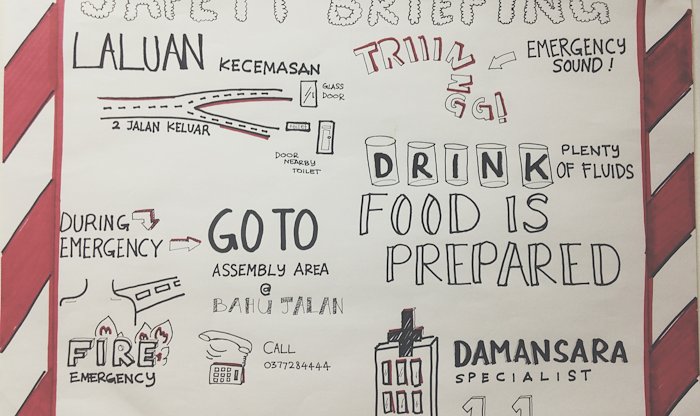 SAFETY BRIEFING
LALUAN KECEMASAN
GLASS
DOOR
2 JALAN KELUAR
DOOR
NEARBY
TOILET
TRIIINNGG!
EMERGENCY
SOUND!
DRINK PLENTY
OF FLUIDS
FOOD IS
PREPARED
DURING
EMERGENCY
GO TO
ASSEMBLY AREA
@
BAHU JALAN
FIRE
EMERGENCY
CALL
0377284444
DAMANSARA
SPECIALIST